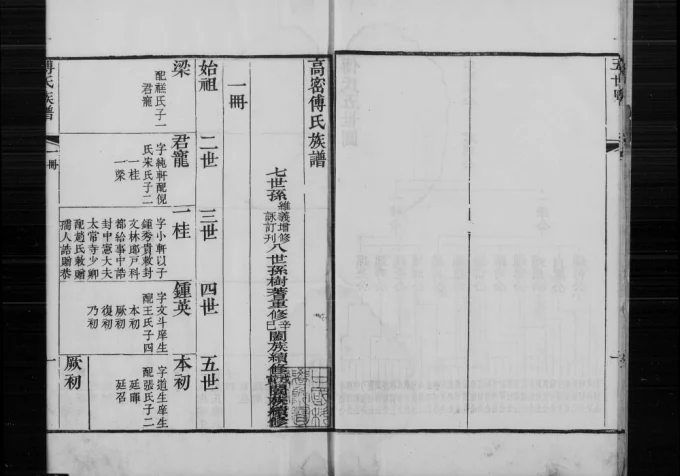 五世界
高密傅氏族譜
七世孫
維義增修
詠訂刋
八世孫樹蓍重修
辛巳
闔族續修
闔族續修
一冊
始祖
二世
三世
四世
五世
梁
配䄎氏子二
君寵
君寵
字純軒配倪
氏宋氏子二
一桂
一榮
一桂
字小軒以子
鍾秀貴敕封
文林郎戸科
都給事中誥
封中憲大夫
太常寺少卿
配趙氏敕贈
孺人誥贈恭
鍾英
字文斗庠生
配王氏子四
本初
厥初
復初
乃初
本初
字道生庠生
配張氏子二
延暉
延召
厥初
傅氏族譜
一冊
一